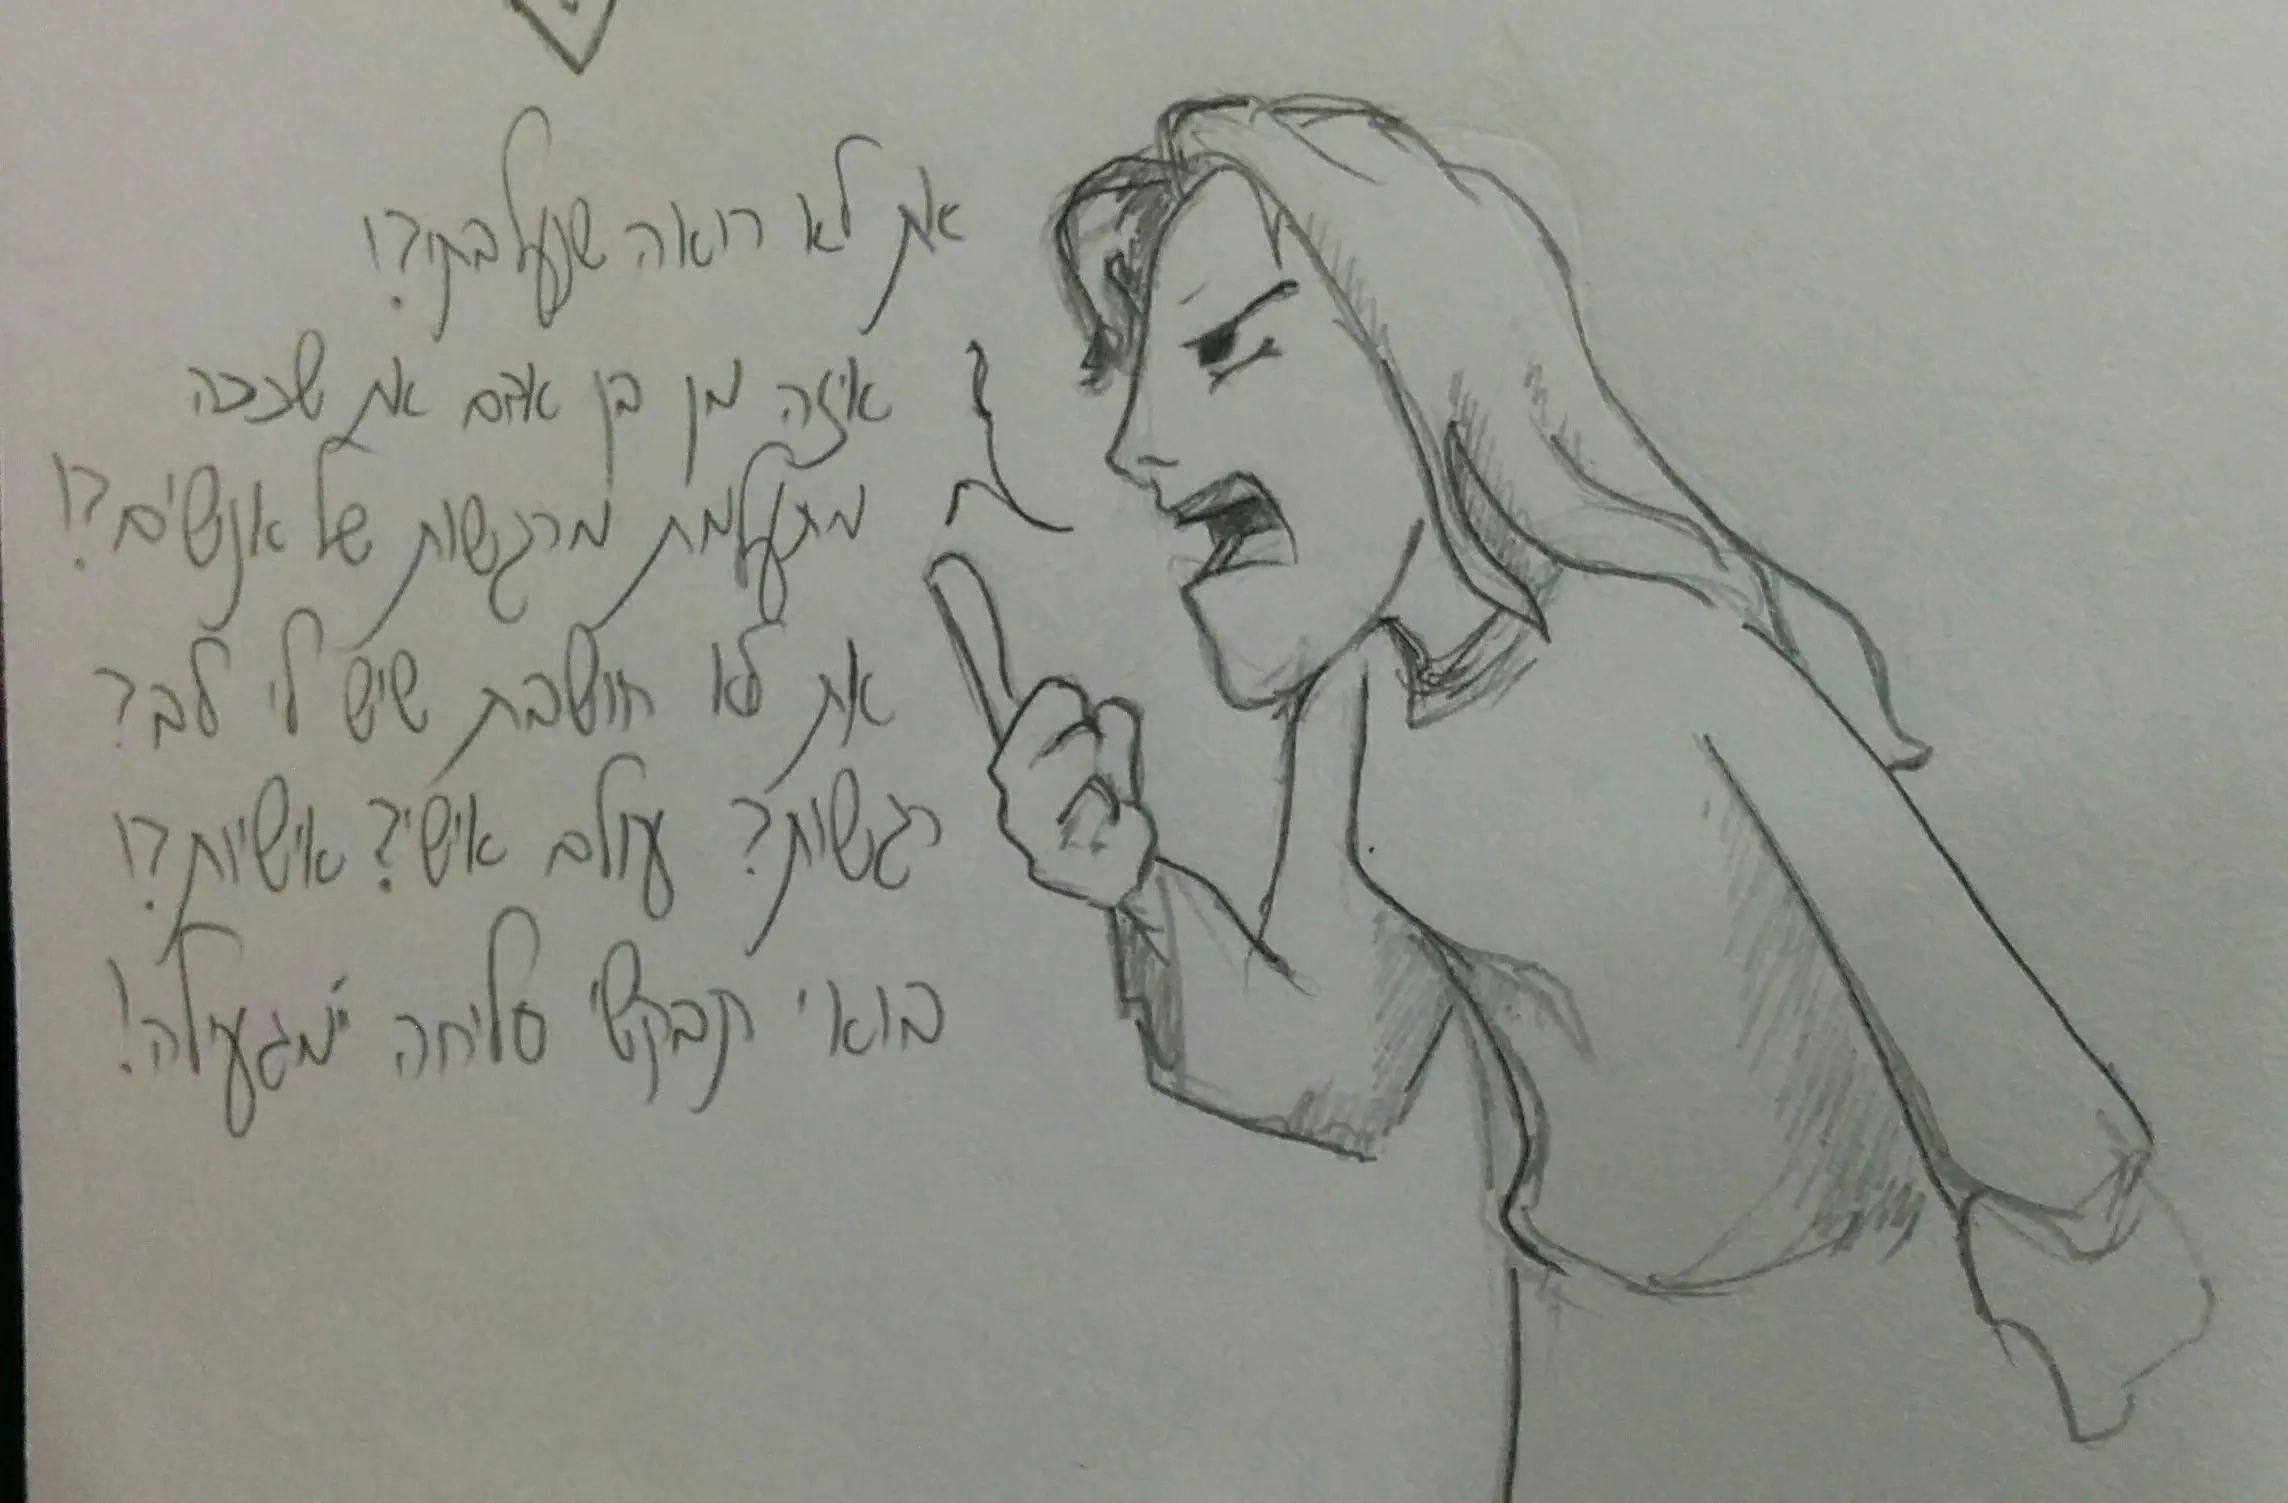 את לא רואה שנעלבתי?!
איזה מן בן אדם את שככה
מתעלמת מרגשות של אנשים?!
את לא חושבת שיש לי לב?
רגשות? עולם אישי? אישיות?!
בואי תבקשי סליחה יימגעילה!